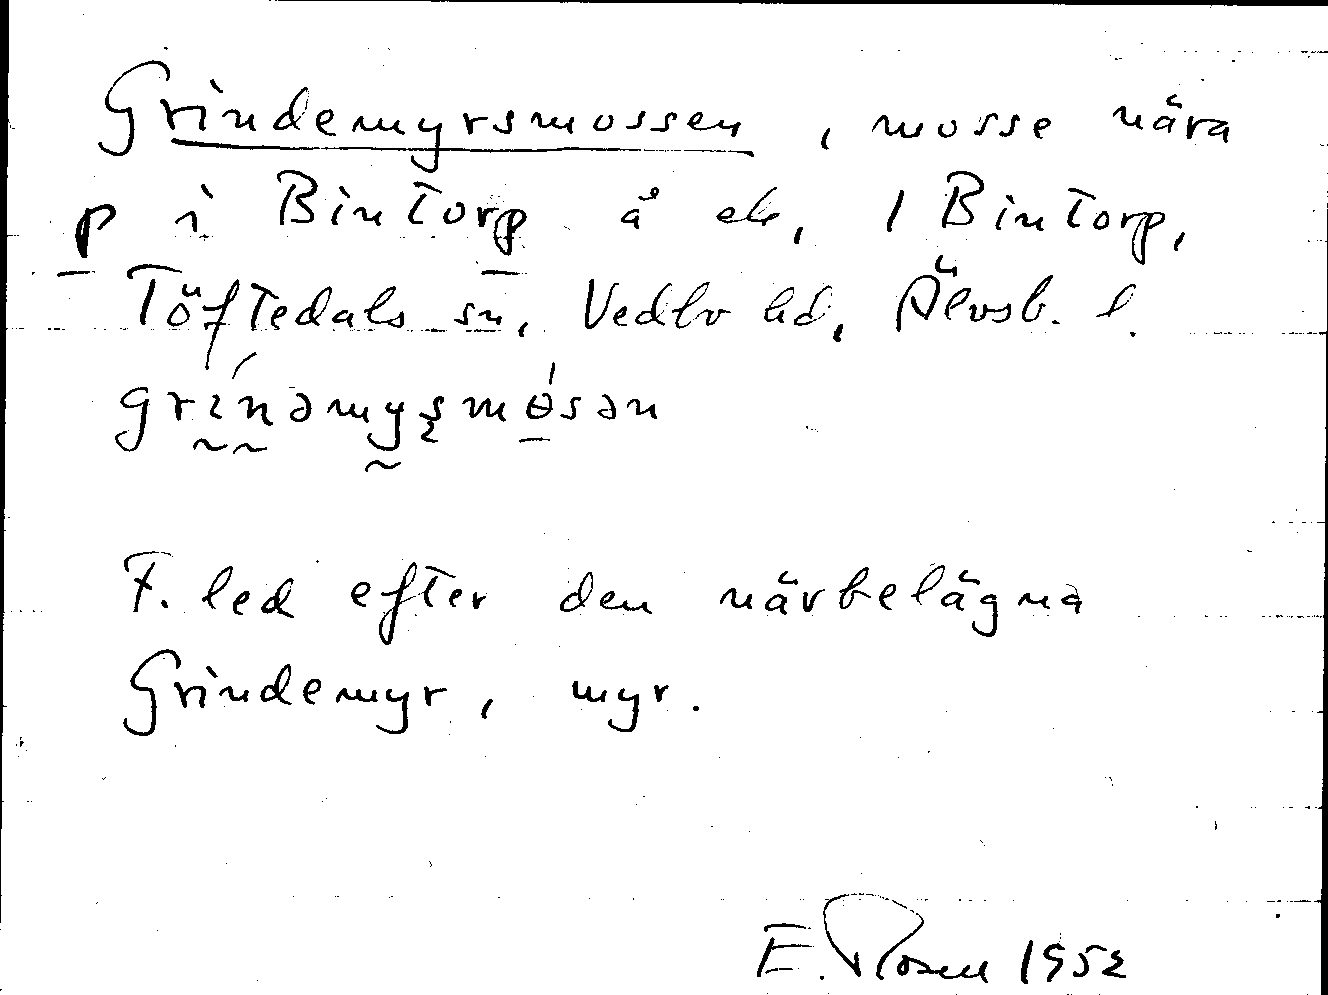 Grindemyrsmossen, mosse nära
p i Bintorp å ek, 1 Bintorp,
Töftedals sn, Vedbo hd, Älvsb. l.
grínəmyʂmɵ́sən
F. led efter den närbelägna
Grindemyr, myr.
E. Rosell 1952